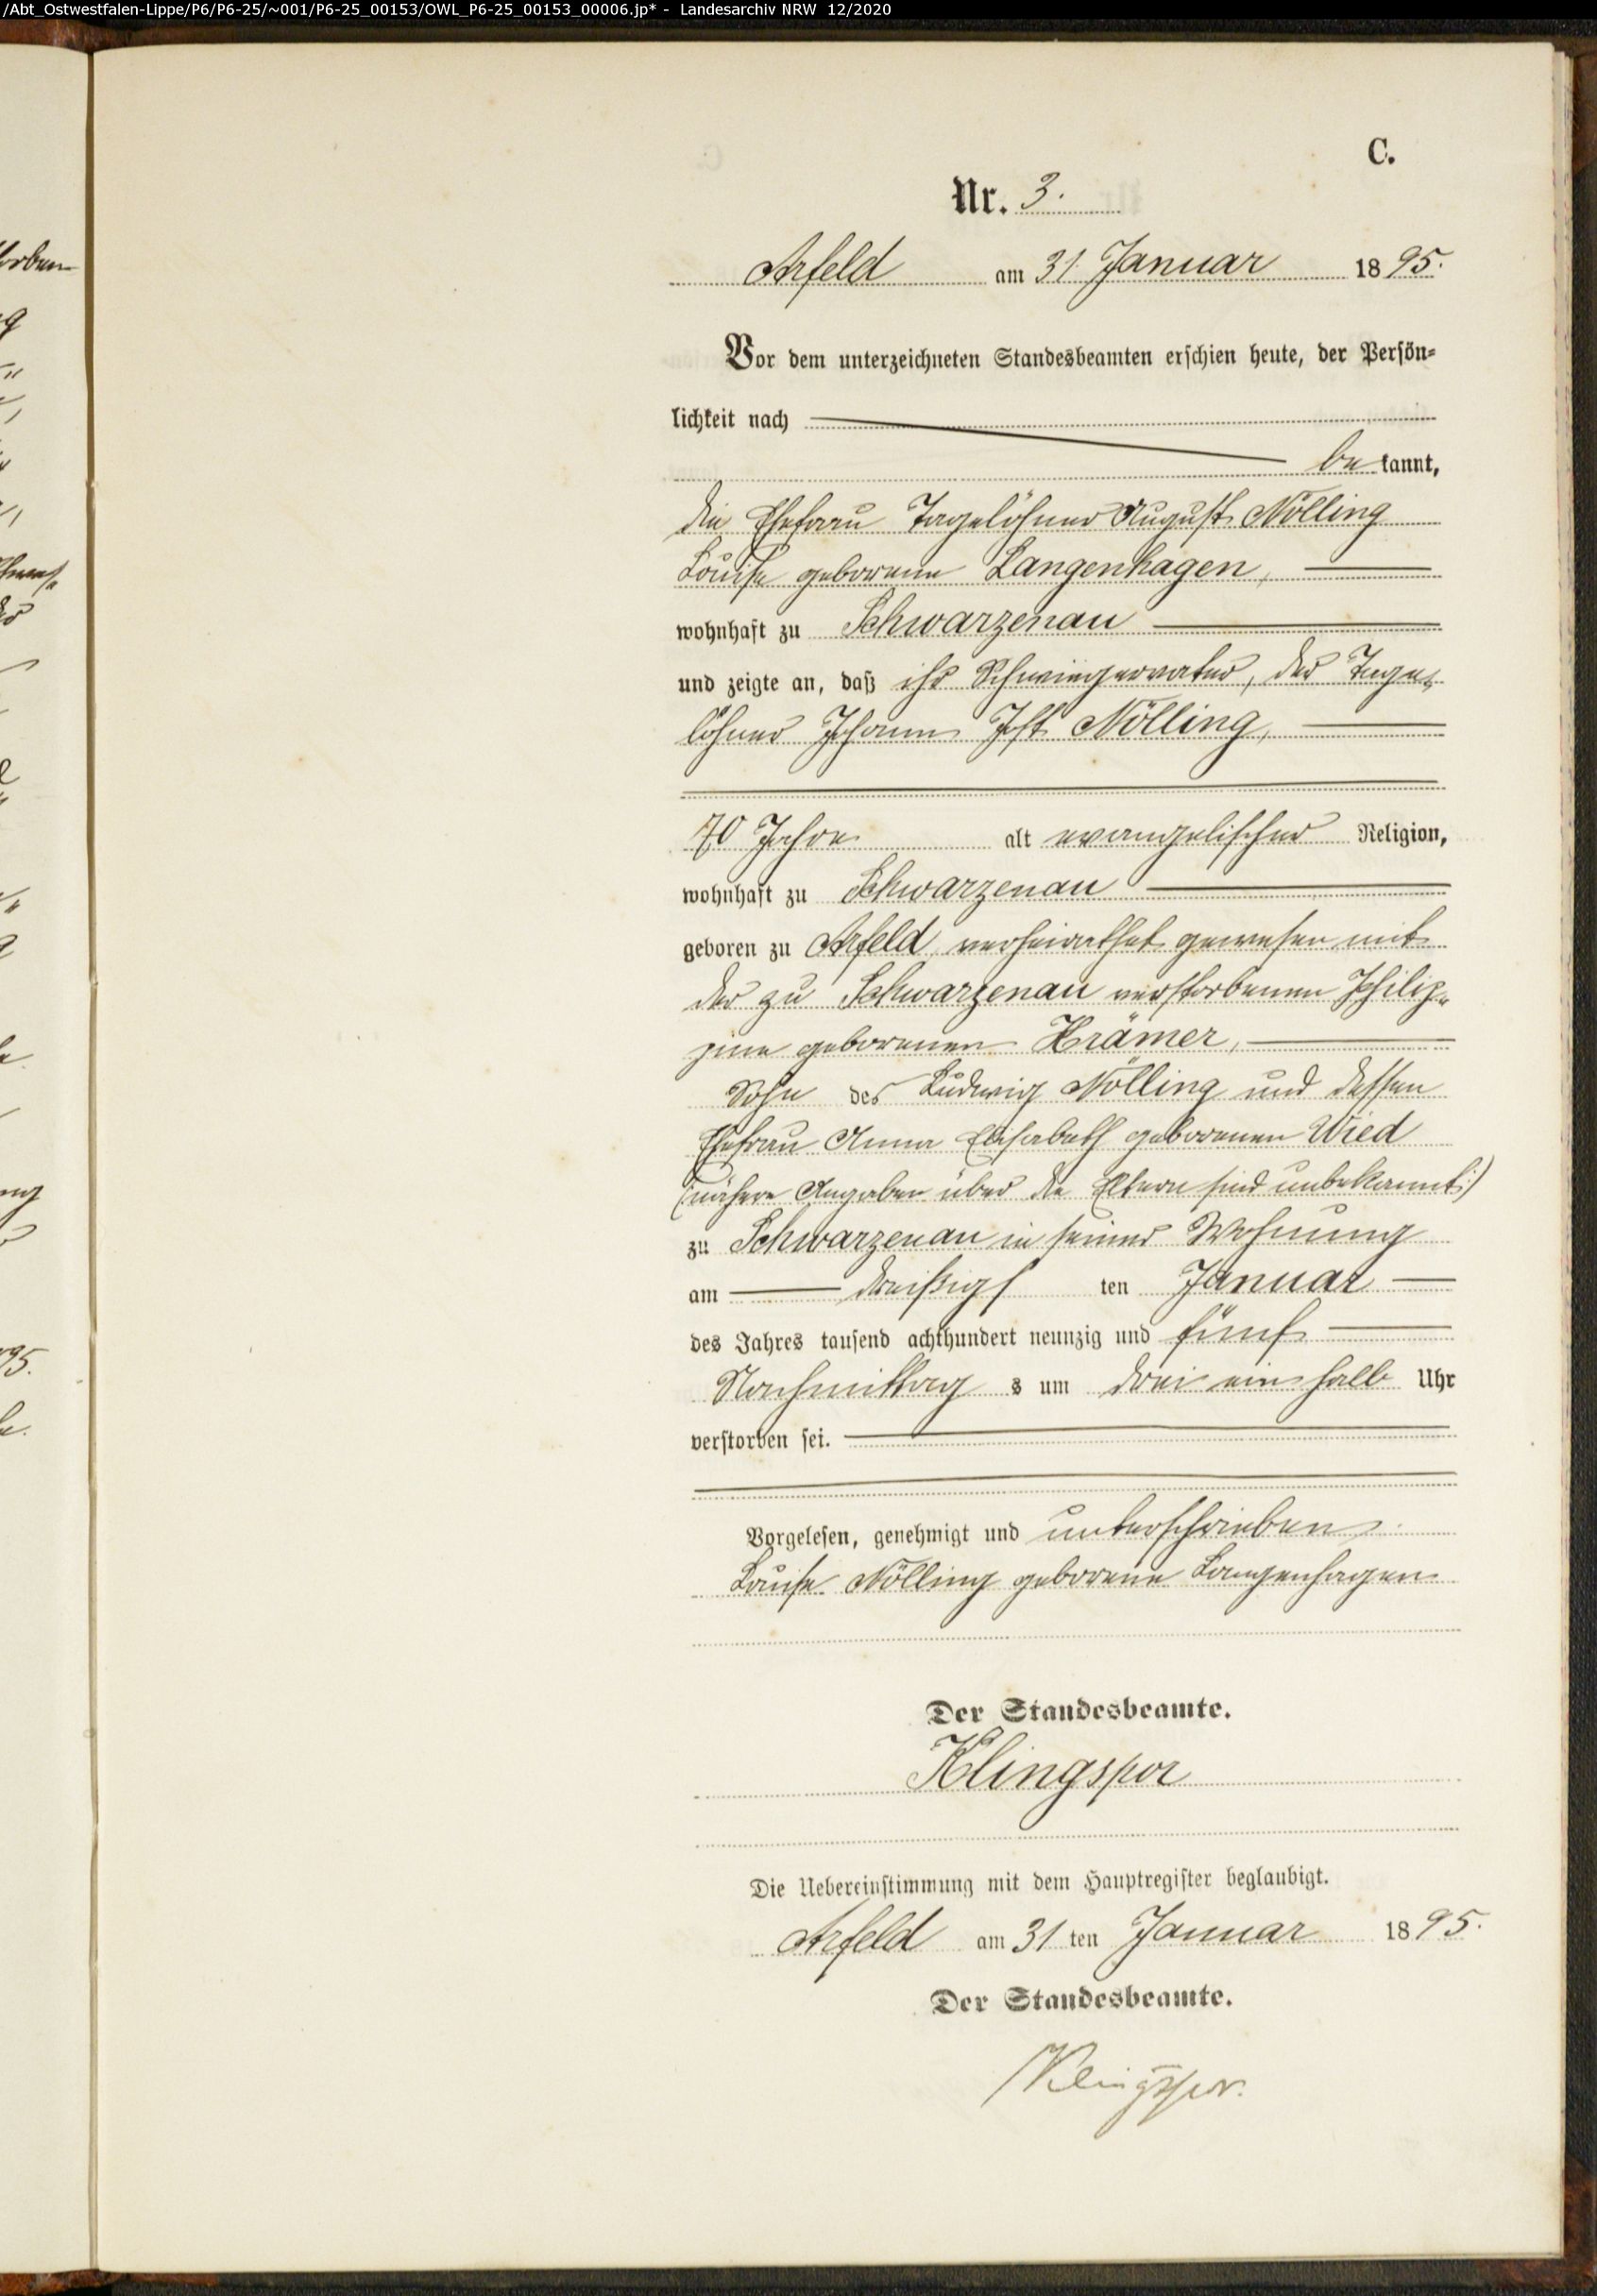 /Abt_Ostwestfalen-Lippe/P6/P6-25/~001/P6-25_00153/OWL_P6-25_00153_00006.jp* - Landesarchiv NRW 12/2020
C.
Nr. 3.
Arfeld am 31. Januar 1895.
Vor dem unterzeichneten Standesbeamten erschien heute, der Persön-
lichkeit nach
bekannt,
die Ehefrau Tagelöhner August Nölling
Louise geborene Langenhagen,
wohnhaft zu Schwarzenau
und zeigte an, daß ihr Schwiegervater, der Tage-
löhner Johann Jost Nölling,
70 Jahre alt evangelischer Religion,
wohnhaft zu Schwarzenau
geboren zu Arfeld, verheirathet gewesen mit
der zu Schwarzenau verstorbenen Philip-
pine geborenen Krämer,
Sohn des Ludwig Nölling und dessen
Ehefrau Anna Elisabeth geborenen Wied
(:nähere Angaben über die Eltern sind unbekannt:)
zu Schwarzenau in seiner Wohnung
am dreißigsten Januar
des Jahres tausend achthundert neunzig und fünf
Nachmittags um drei ein halb Uhr
verstorben sei.
Vorgelesen, genehmigt und unterschrieben
Louise Nölling geborene Langenhagen
Der Standesbeamte.
Klingspor
Die Uebereinstimmung mit dem Hauptregister beglaubigt.
Arfeld am 31 ten Januar 1895.
Der Standesbeamte.
Klingspor.